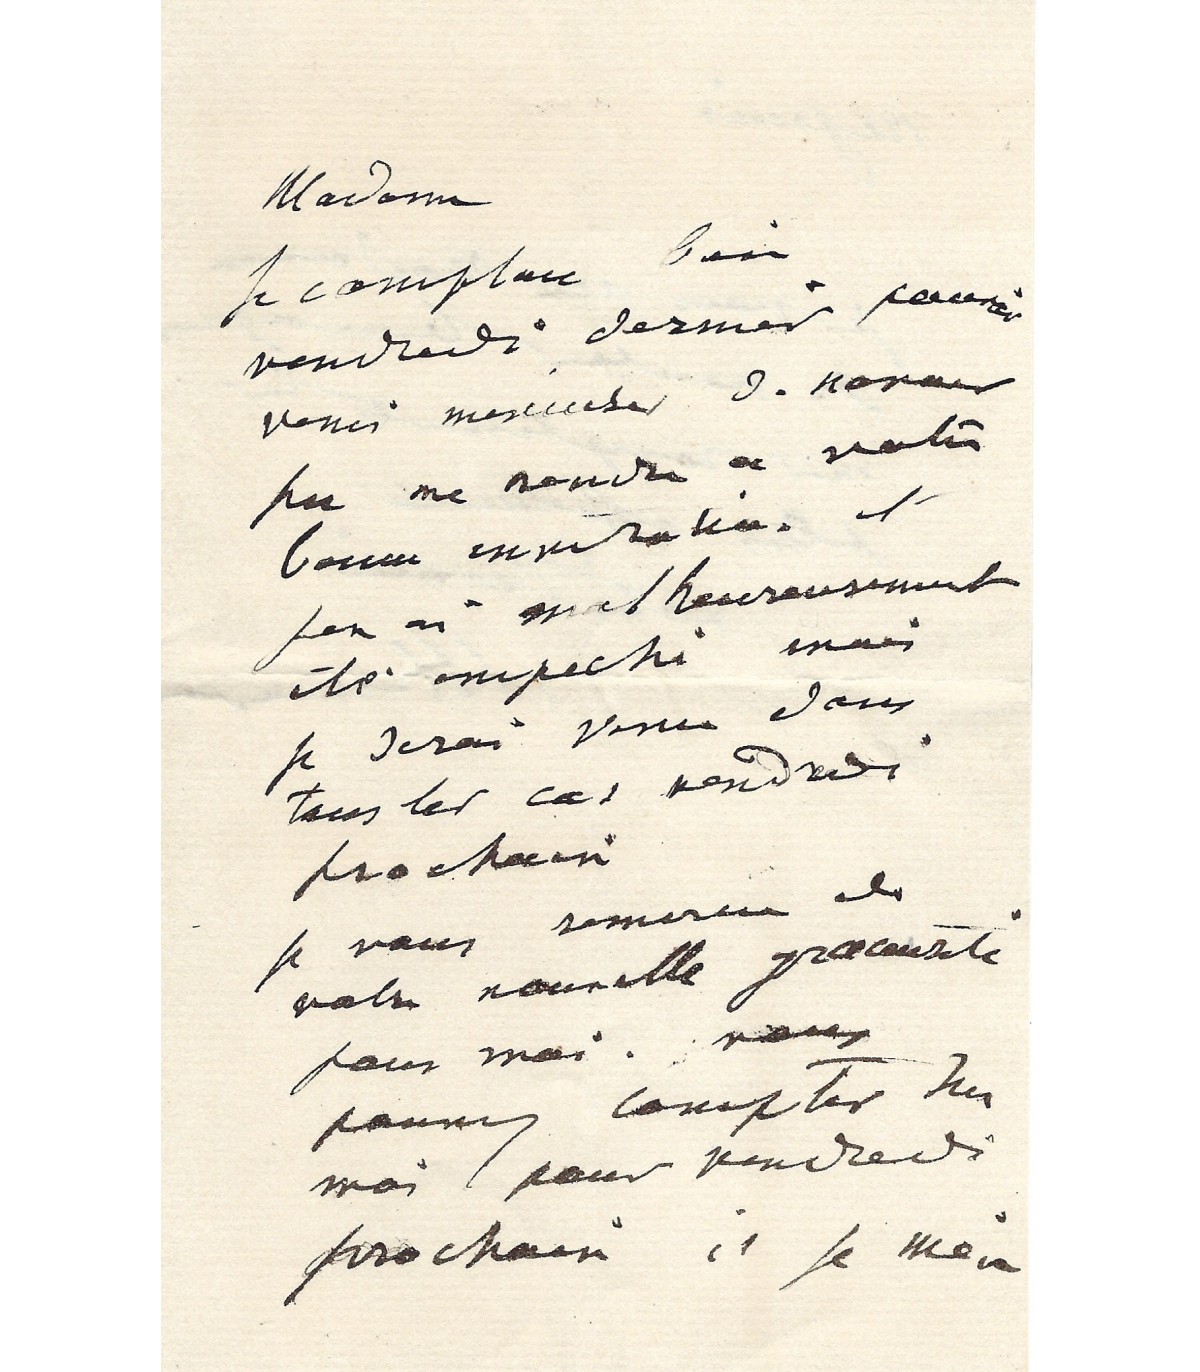 Madame
je comptais bien
vendredi dernier pouvoir
venir m'excuser de n'avoir
pu me rendre a votre
bonne invitation. et
j'en ai malheureusement
été empeché mais
je serai venu dans
tous les cas vendredi
prochain
je vous remercie de
votre nouvelle gracieuseté
pour moi. vous
pouvez compter sur
moi pour vendredi
prochain et je m'en